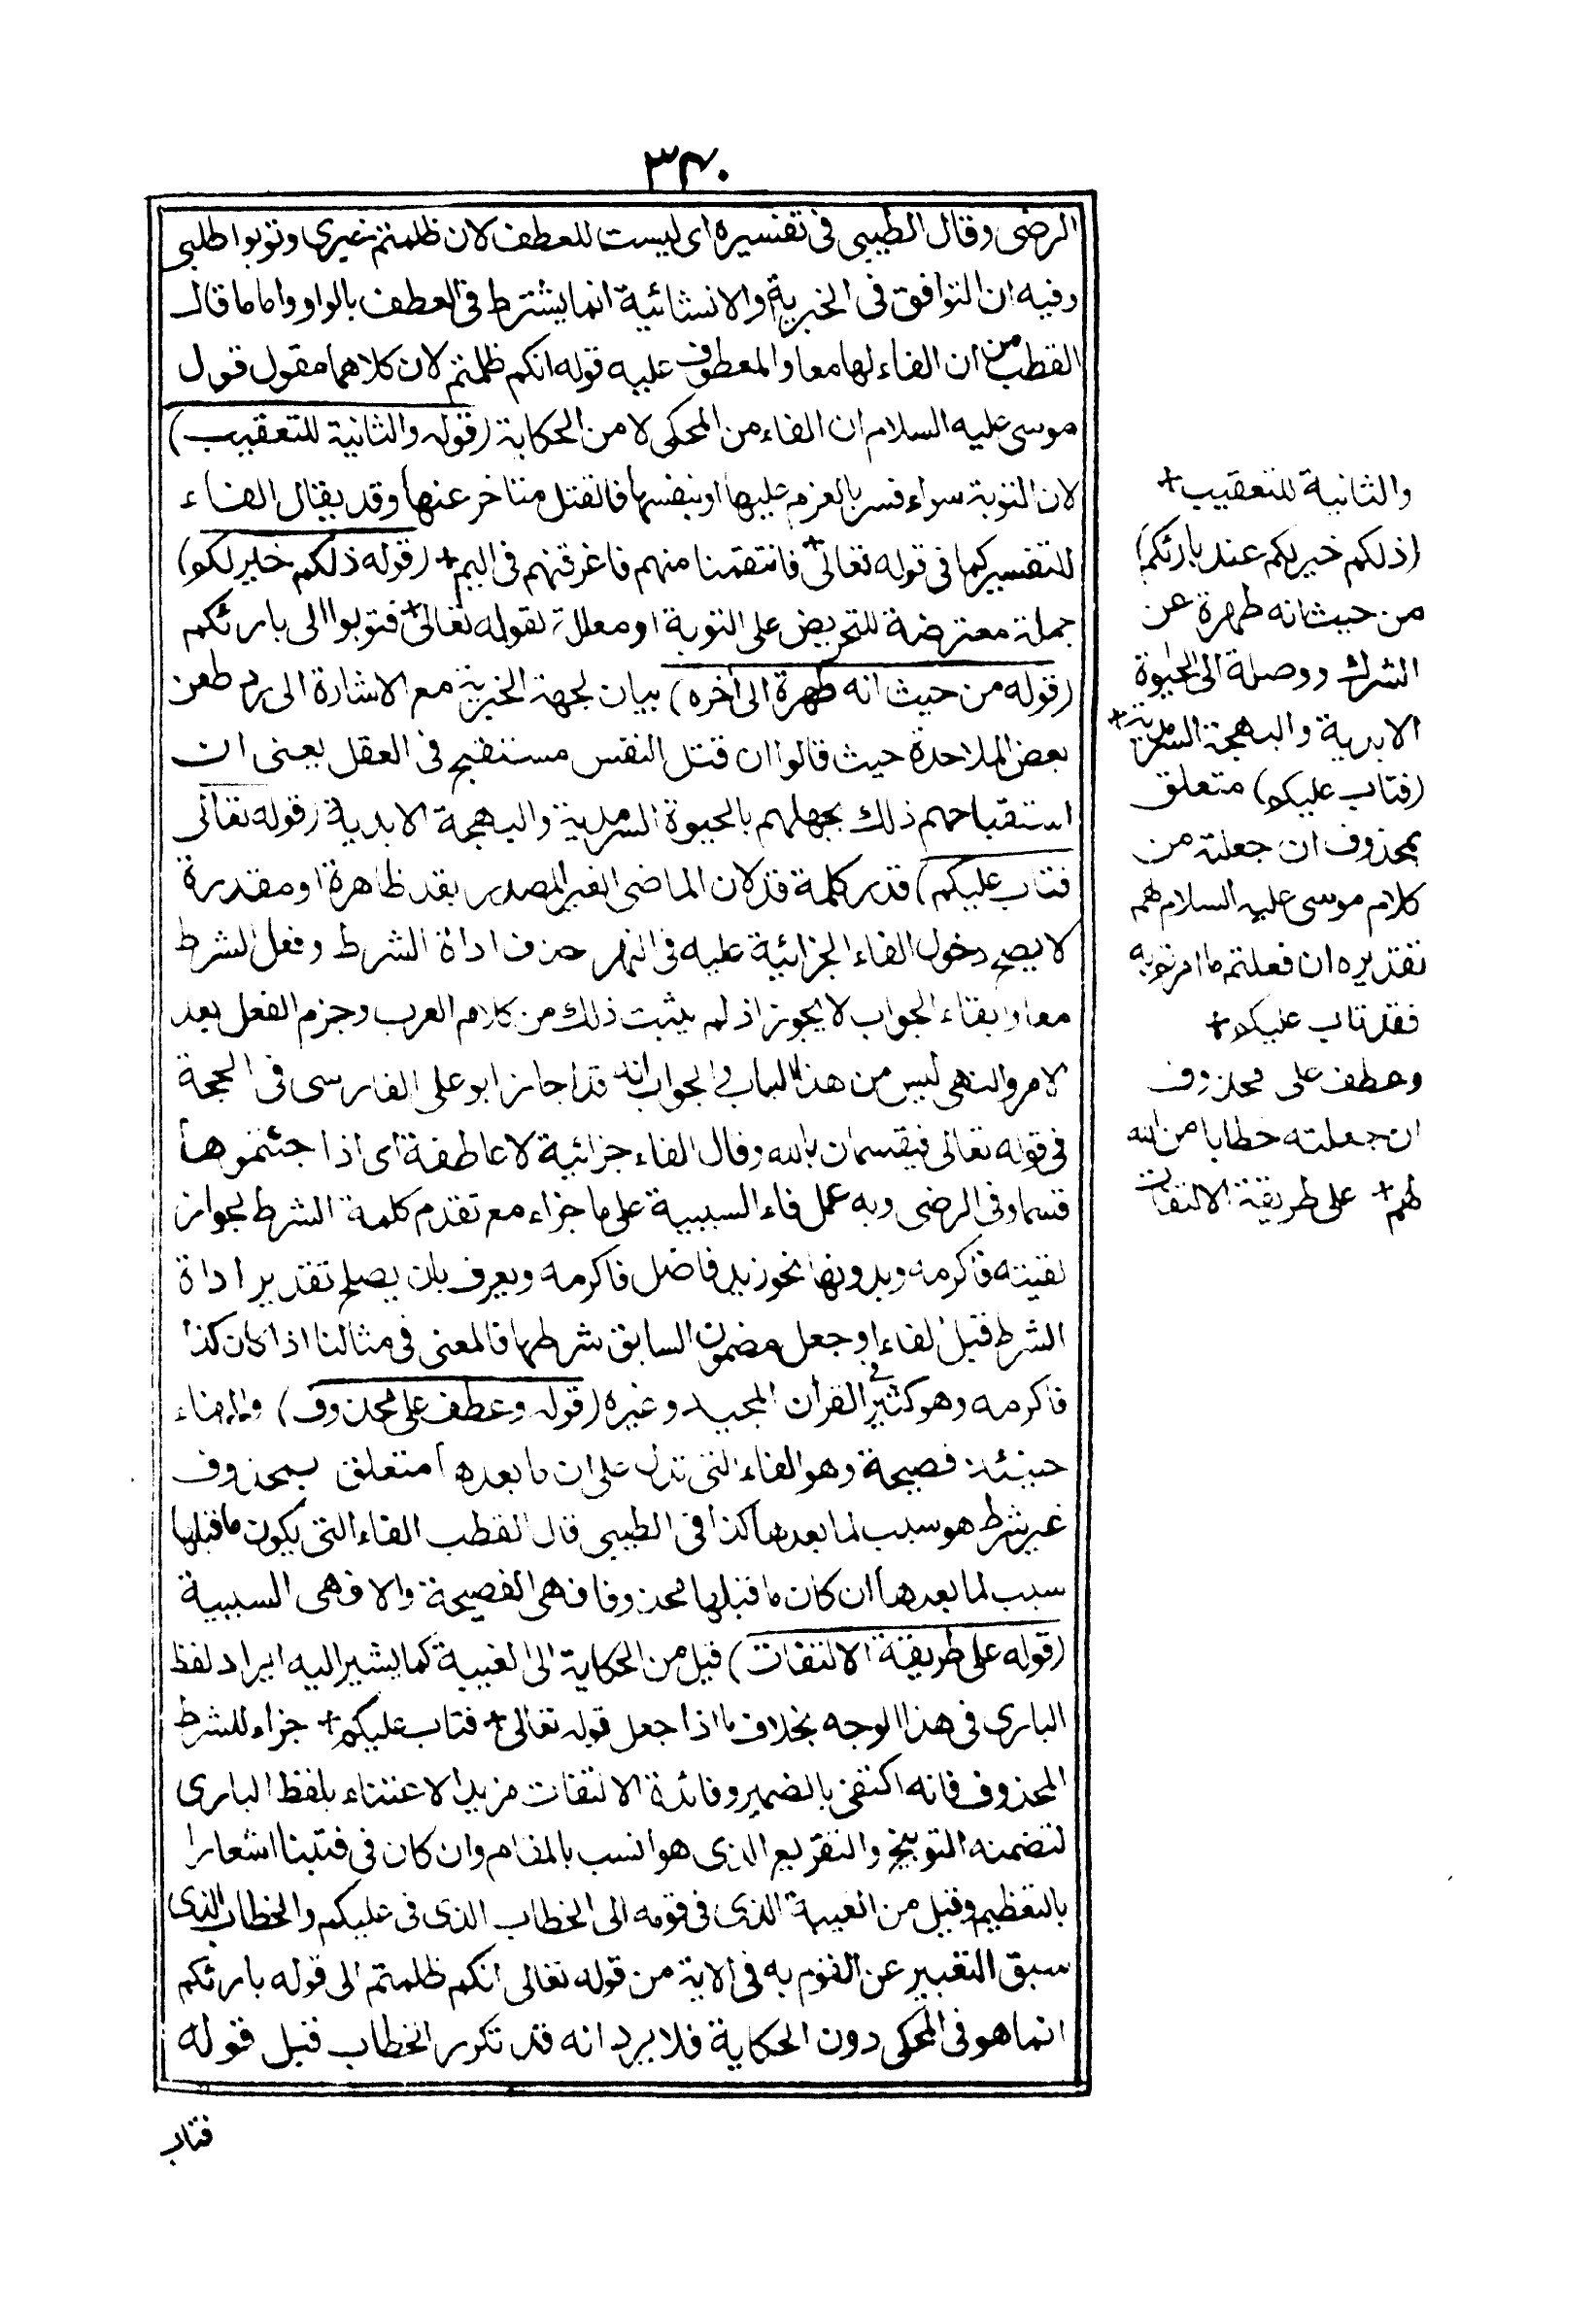 ٣٤٠
الرضى وقال الطيبى فى تفسيره اى ليست للعطف لان ظلمتم خبرى وتوبوا طلبى
وفيه ان التوافق فى الخبرية والانشائية انما يشترط فى العطف بالواو واما ما قال
القطب من ان الفاء لها معا والمعطوف عليه قوله انكم ظلمتم لان كلاهما مقول قول
موسى عليه السلام ان الفاء من المحكى لا من الحكاية (قوله والثانية للتعقيب)
لان التوبة سواء فسر بالعزم عليها او بنفسها فالقتل متاخر عنها وقد يقال الفاء
للتفسير كما فى قوله تعالى + فانتقمنا منهم فاغرقنهم فى اليم + (قوله ذلكم خير لكم)
جملة معترضة للتحريض على التوبة او معللة لقوله تعالى + فتوبوا الى بارئكم
(قوله من حيث انه طهرة الى آخره) بيان لجهة الخيرية مع الاشارة الى رد طعن
بعض الملاحدة حيث قالوا ان قتل النفس مستقبح فى العقل يعنى ان
استقباحهم ذلك بجهلهم بالحيوة السرمدية والبهجة الابدية (قوله تعالى
فتاب عليكم) قدر كلمة قد لان الماضى الغير المصدر بقد ظاهرة او مقدرة
لا يصح دخول الفاء الجزائية عليه فى النهر حذف اداة الشرط وفعل الشرط
معا وابقاء الجواب لا يجوز اذ لم يثبت ذلك من كلام العرب وجزم الفعل بعد
الامر والنهى ليس من هذا الباب والجواب انه قد اجاز ابو على الفارسى فى الحجة
فى قوله تعالى فيقسمان بالله وقال الفاء جزائية لا عاطفة اى اذا جئتموها
قسما وفى الرضى وبه عمل فاء السببية على ما جزاء مع تقدم كلمة الشرط بجواز
لقيته فاكرمه وبدونها نحو زيد فاضل فاكرمه ويعرف بان يصلح تقدير اداة
الشرط قبل الفاء وجعل مضمون السابق شرطها فالمعنى فى مثالنا اذا كان كذا
فاكرمه وهو كثير فى القرآن المجيد وغيره (قوله وعطف على محذوف) والفاء
حينئذ فصيحة وهو الفاء التى تدل على ان ما بعدها متعلق بمحذوف
غير شرط هو سبب لما بعدها كذا فى الطيبى قال القطب الفاء التى يكون ما قبلها
سبب لما بعدها ان كان ما قبلها محذوفا فهى الفصيحة والا فهى السببية
(قوله على طريقة الالتفات) قيل من الحكاية الى الغيبة كما يشير اليه ايراد لفظ
البارى فى هذا الوجه بخلاف ما اذا جعل قوله تعالى + فتاب عليكم + جزاء للشرط
المحذوف فانه اكتفى بالضمير وفائدة الالتفات مزيد الاعتناء بلفظ البارى
لتضمنه التوبيخ والتقريع الذى هو انسب بالمقام وان كان فى فتبنا اشعارا
بالتعظيم وقيل من الغيبة الذى فى قومه الى الخطاب الذى فى عليكم والخطاب الذى
سبق التعبير عن القوم به فى الاية من قوله تعالى انكم ظلمتم الى قوله بارئكم
انما هو فى المحكى دون الحكاية فلا يرد انه قد تكرر الخطاب قبل قوله
فتاب
والثانية للتعقيب +
(ذلكم خير لكم عند بارئكم)
من حيث انه طهرة عن
الشرك ووصلة الى الحيوة
الابدية والبهجة السرمدية +
(فتاب عليكم) متعلق
بمحذوف ان جعلته من
كلام موسى عليه السلام لهم
تقديره ان فعلتم ما امرتم به
فقد تاب عليكم +
وعطف على محذوف
ان جعلته خطابا من الله
لهم + على طريقة الالتفات